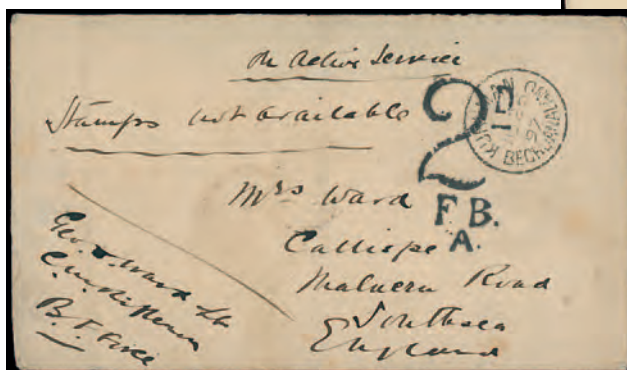 On Active Service
Stamps not available
2D
F.B.
A.
KURUMAN
97
BECHUANALAND
Mrs Ward
Calliope
Malvern Road
Southsea
England
Geo. Ward
B. F. Force